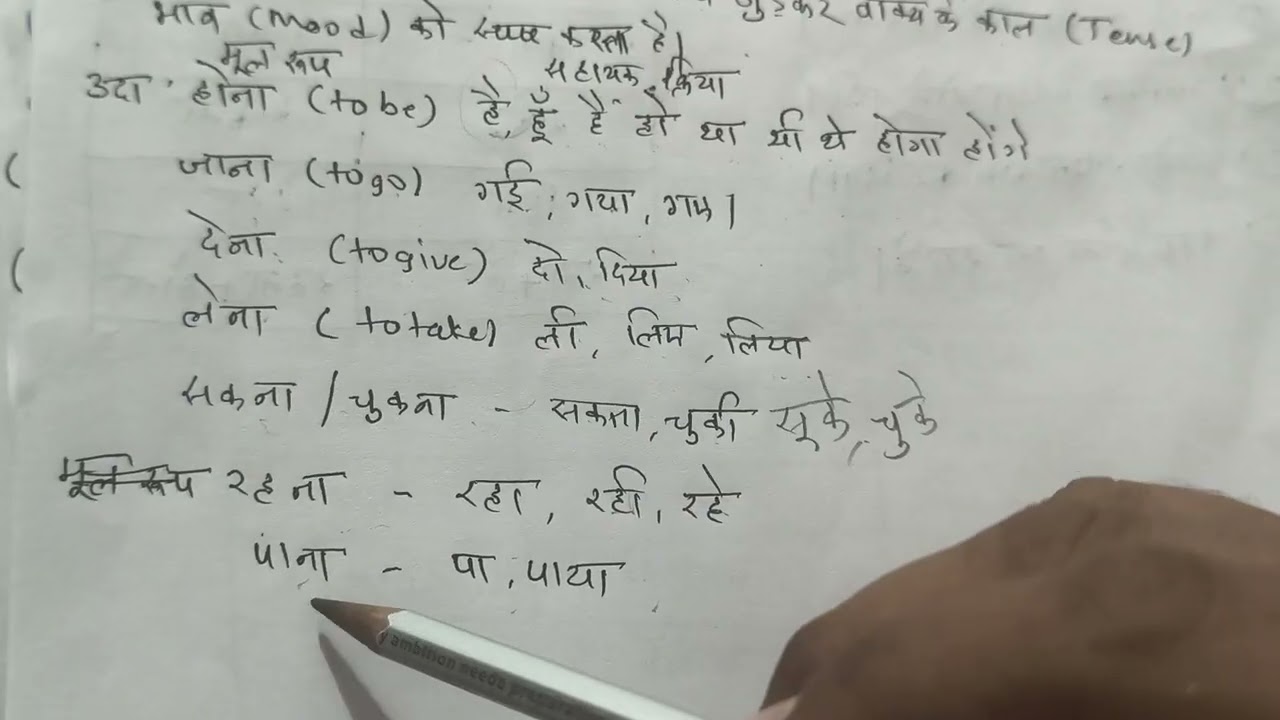 जुड़कर वाक्य के काल (Tense)
भाव (Mood) को स्पष्ट करता है।
मूल रूप सहायक क्रिया
उदा होना (to be) है, हूँ हैं हो था थी थे होगा होंगे
जाना (to go) गई, गया, गए।
देना (to give) दो, दिया
लेना (to take) ली, लिए, लिया
सकना / चुकना - सकता, चुकी सके, चुके
मूल रूप रहना - रहा, रही, रहे
पाना - पा, पाया
ambition needs